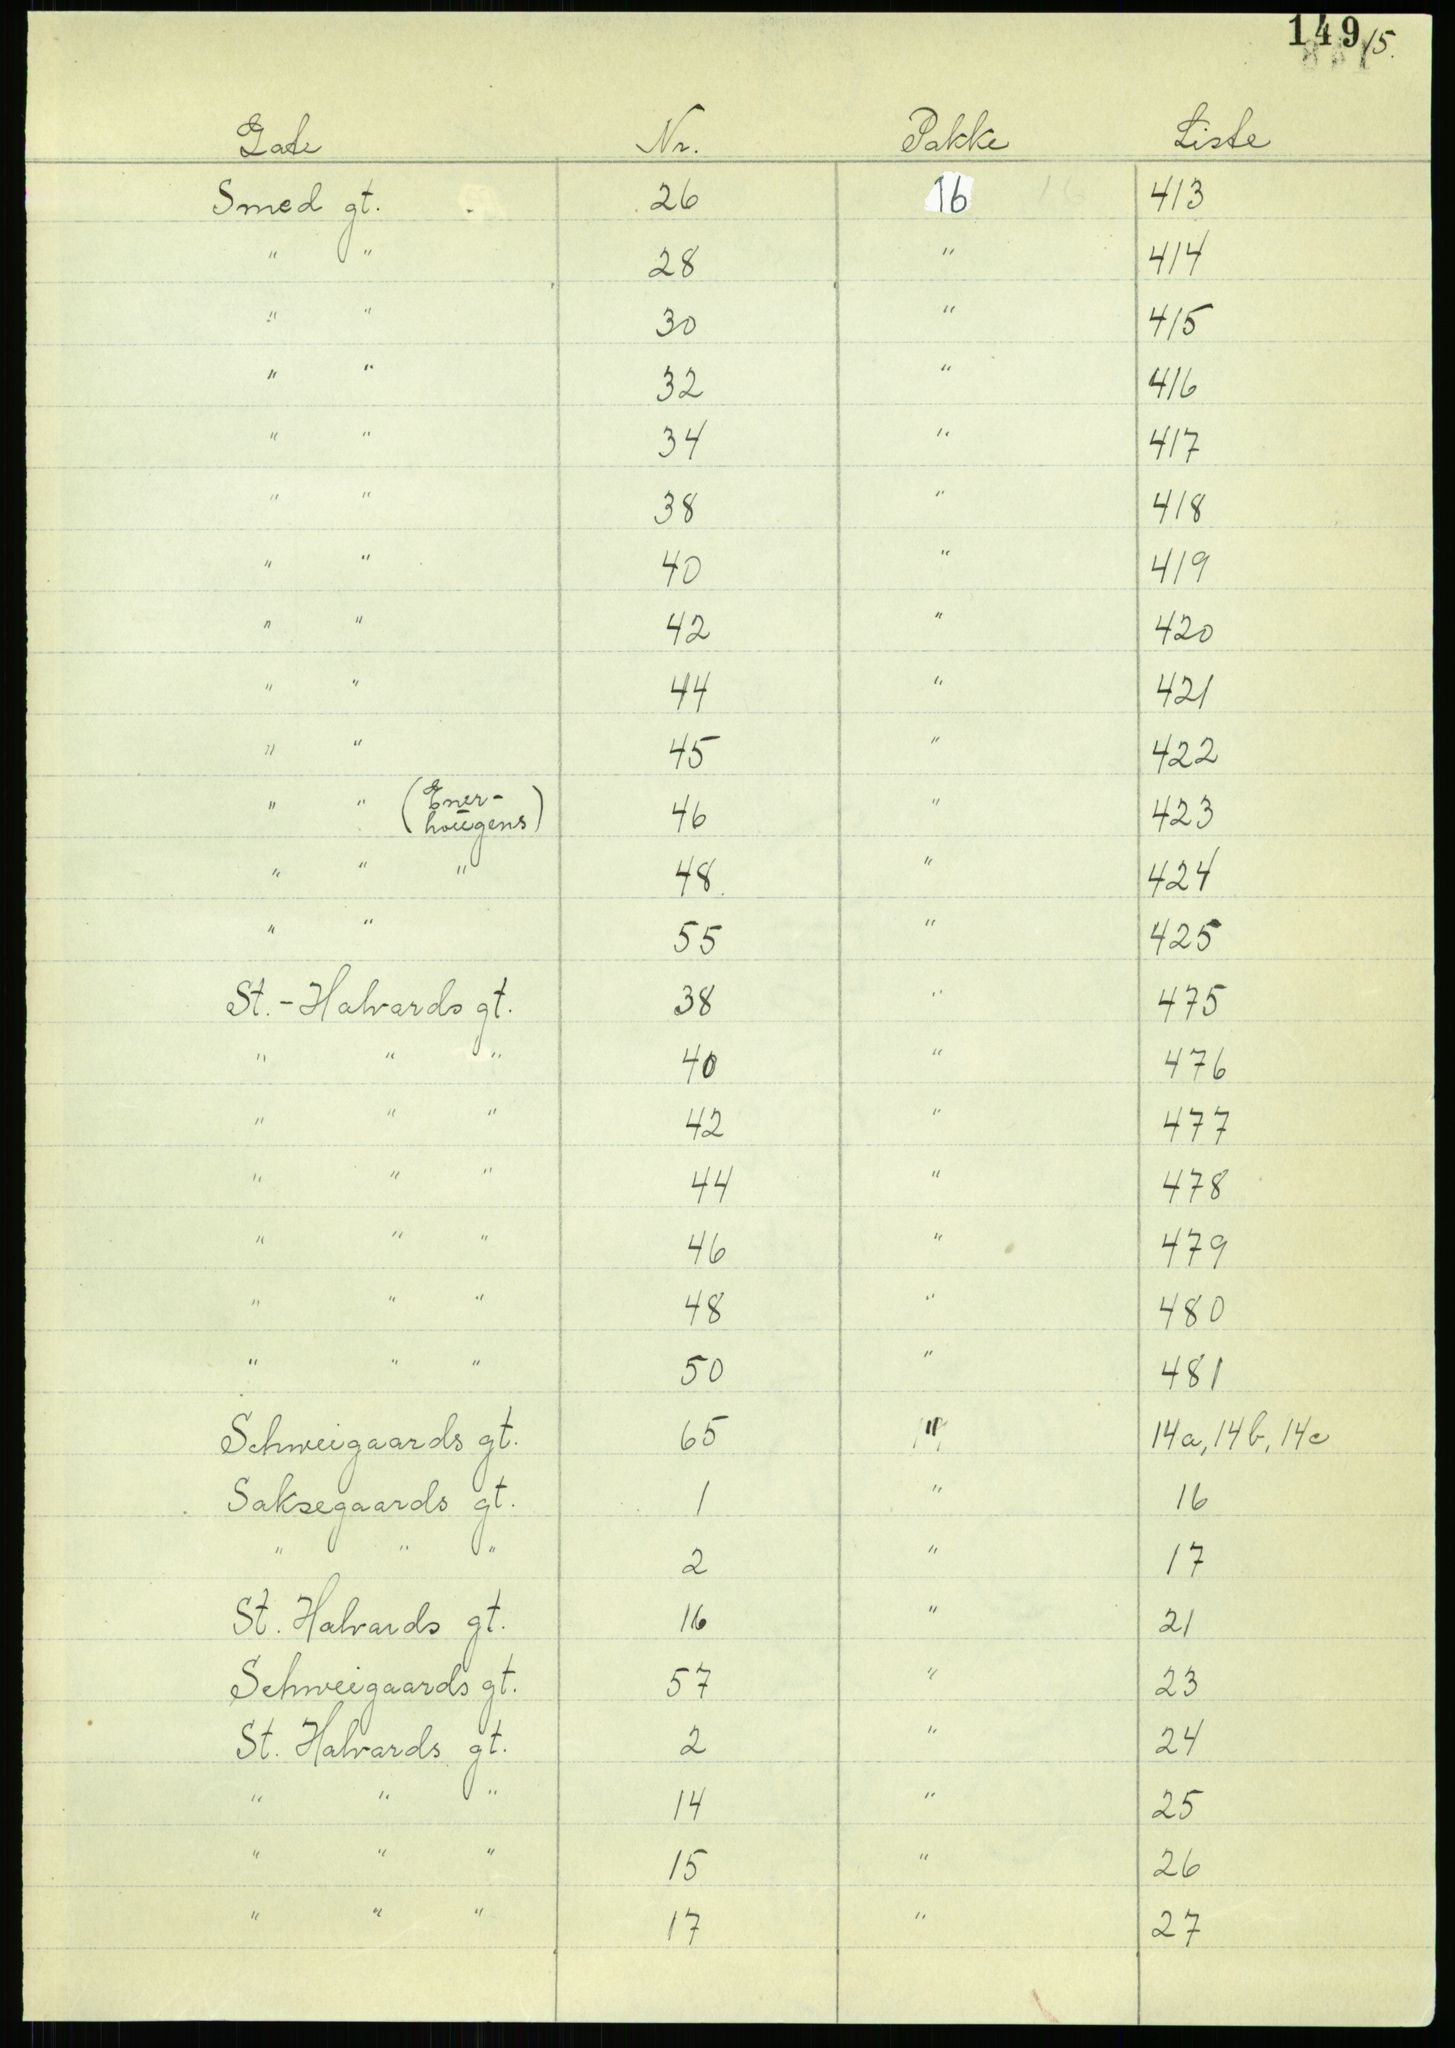 149 15.
Gate Nr. Pakke Liste
Smed gt. 26 16 413
" " 28 " 414
" " 30 " 415
" " 32 " 416
" " 34 " 417
" " 38 " 418
" " 40 " 419
" " 42 " 420
" " 44 " 421
" " 45 " 422
" " (Ener-
hougens) 46 " 423
" " " 48 " 424
" " 55 " 425
St.-Halvards gt. 38 " 475
" " " 40 " 476
" " " 42 " 477
" " " 44 " 478
" " " 46 " 479
" " " 48 " 480
" " " 50 " 481
Schweigaards gt. 65 " 14a, 14b, 14c
Saksegaards gt. 1 " 16
" " " 2 " 17
St. Halvards gt. 16 " 21
Schweigaards gt. 57 " 23
St. Halvards gt. 2 " 24
" " " 14 " 25
" " " 15 " 26
" " " 17 " 27